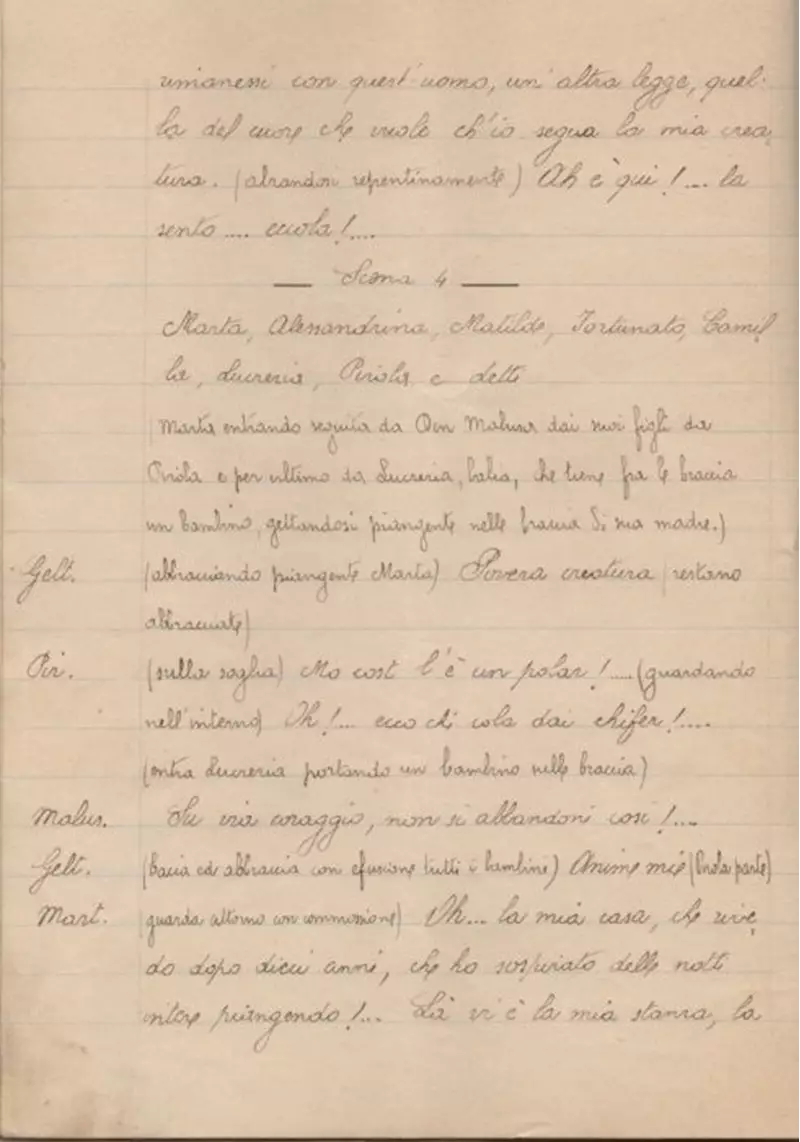 rimanessi con quest'uomo, un'altra legge, quel-
la del cuore che vuole ch'io segua la mia crea
tura. (alzandosi repentinamente) Ah è qui!... la
sento.... eccola!....
Scena 4
Marta, Alessandrina, Matilde, Fortunato, Camil
la, Lucrezia, Piriola e detti
(Marta entrando seguita da Don Malusa dai suoi figli da
Piriola e per ultimo da Lucrezia, balia, che tiene fra le braccia
un bambino, gettandosi piangente nelle braccia di sua madre.)
Gelt. (abbracciando piangente Marta) Povera creatura (restano
abbracciate)
Pir. (sulla soglia) Mo cost l'è un polar!.....(guardando
nell'interno) Oh!... ecco di cola dai chifer!....
(entra Lucrezia portando un bambino nelle braccia)
Malus. Su via coraggio, non si abbandoni così!...
Gelt. (bacia ed abbraccia con efusione tutti i bambini) Anime mie (Piriola parte)
Mart. (guarda attorno con commozione) Oh... la mia casa, che rive
do dopo dieci anni, che ho sospirato delle notti
intere piangendo!... Là vi è la mia stanza, la